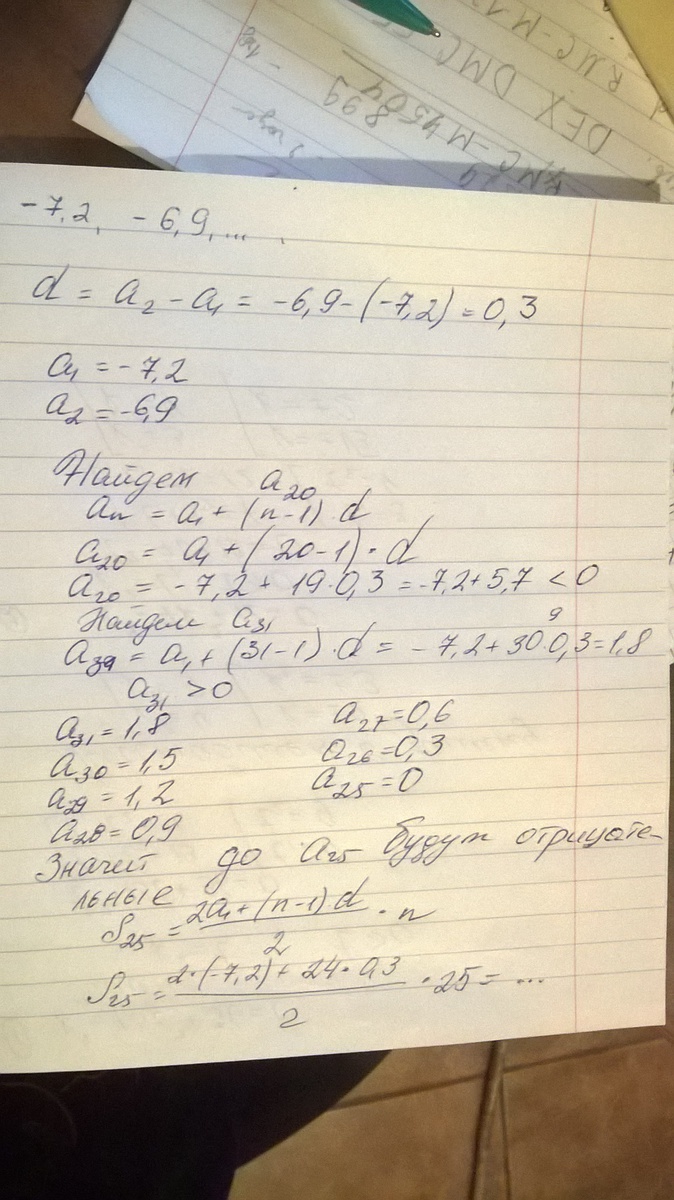 DEX DMC
RMC-M1
RMC-M4504
899
-7,2, -6,9,...
d = a₂ - a₁ = -6,9-(-7,2)=0,3
a₁ = -7,2
a₂ = -6,9
Найдем a₂₀
aₙ = a₁ + (n-1) d
a₂₀ = a₁ + (20-1) · d
a₂₀ = -7,2 + 19·0,3 = -7,2+5,7 < 0
Найдем a₃₁
9
a₃₁ = a₁ + (31-1)·d = -7,2+30·0,3=1,8
a₃₁ > 0
a₃₁ = 1,8
a₃₀ = 1,5
a₂₉ = 1,2
a₂₈ = 0,9
a₂₇ = 0,6
a₂₆ = 0,3
a₂₅ = 0
Значит до a₂₅ будут отрицате-
льные
S₂₅ = (2a₁ + (n-1) d)/2 · n
S₂₅ = (2·(-7,2) + 24·0,3)/2 · 25 = ...